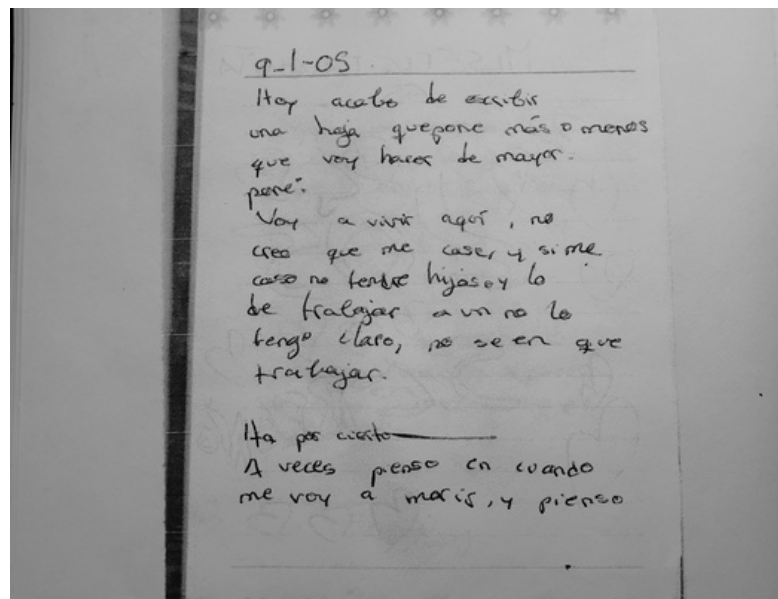 9-1-05
Hoy acabo de escribir
una hoja quepone más o menos
que voy hacer de mayor.
pone:
Voy a vivir aquí, no
creo que me case, y si me
caso no tendre hijos y lo
de trabajar a un no lo
tengo claro, no se en que
trabajar.
Ha por cierto
A veces pienso en cuando
me voy a morir, y pienso